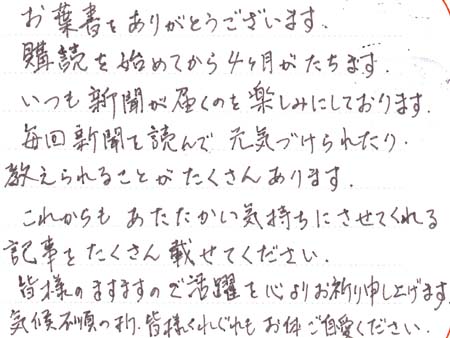 お葉書をありがとうございます.
購読を始めてから4ヶ月がたちます.
いつも新聞が届くのを楽しみにしております.
毎回新聞を読んで元気づけられたり.
教えられることがたくさんあります.
これからもあたたかい気持ちにさせてくれる
記事をたくさん載せてください.
皆様のますますのご活躍を心よりお祈り申し上げます
気候不順の折.皆様くれぐれもお体ご自愛ください.